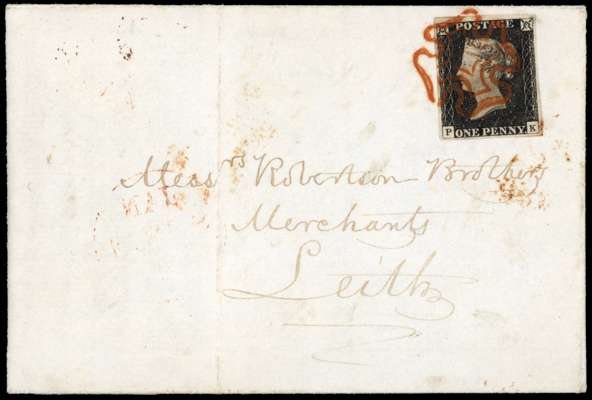 POSTAGE
P ONE PENNY K
Messrs Robertson Brothers
Merchants
Leith